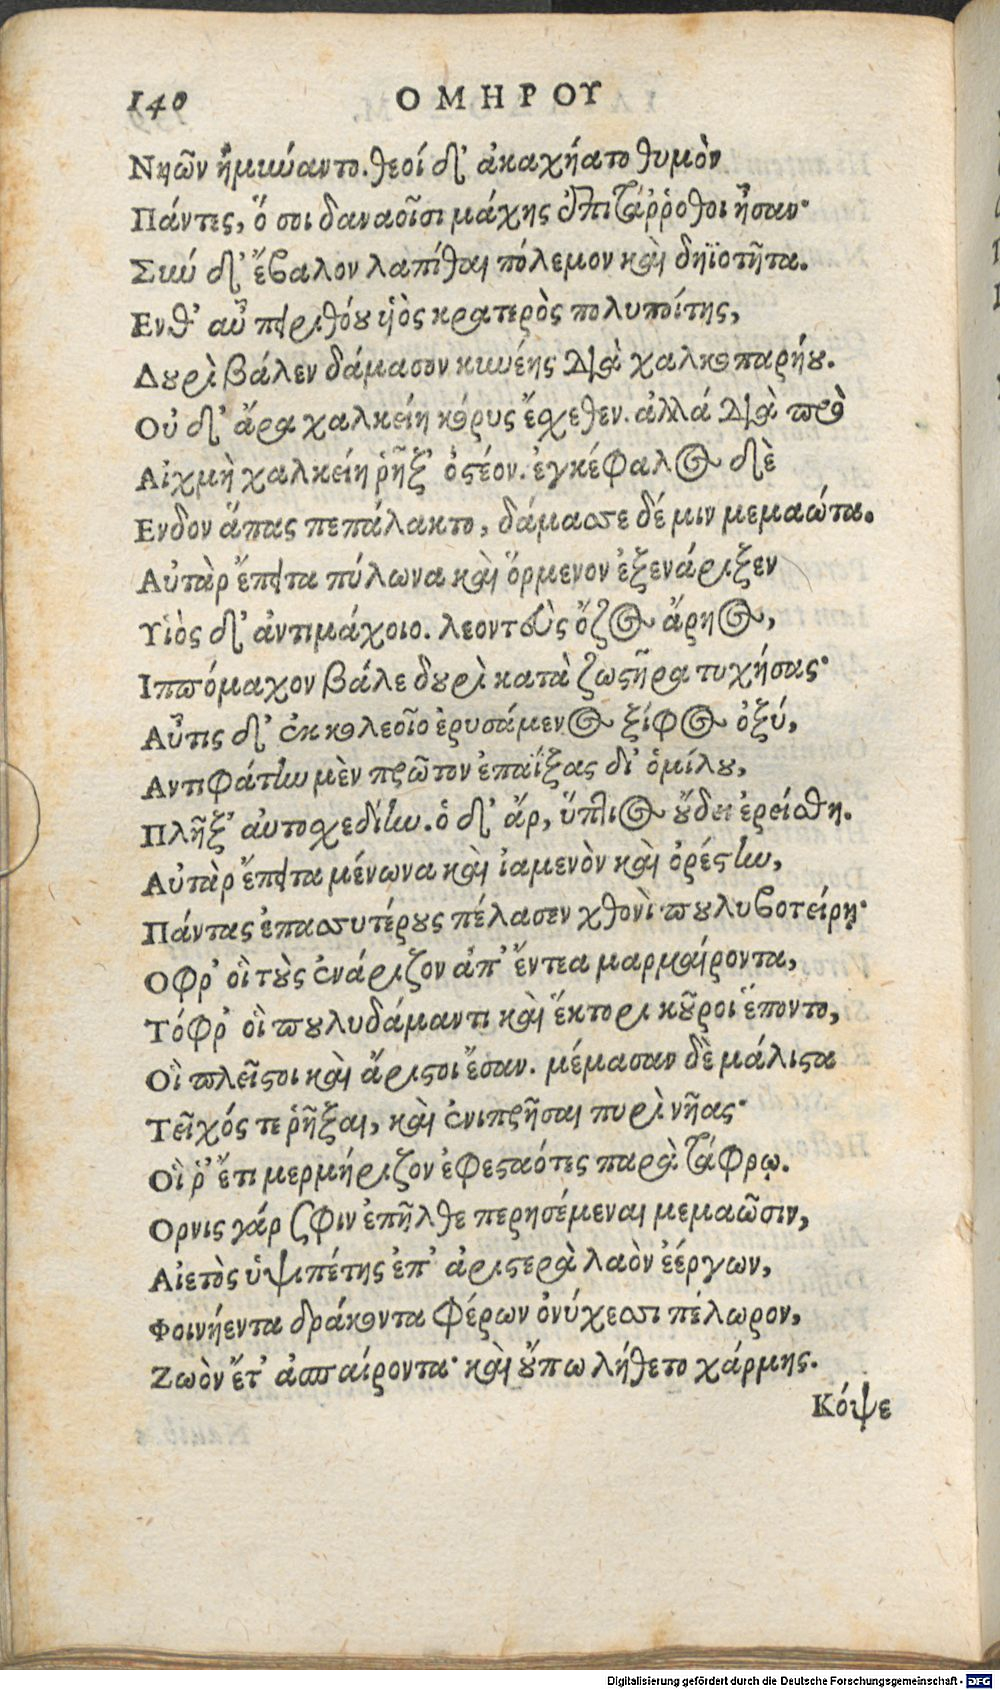 140 ΟΜΗΡΟΥ
Νηῶν ἠμύναντο. θεοί δ' ἀκαχήατο θυμὸν
Πάντες, ὅσοι δαναοῖσι μάχης ἐπιτάῤῥοθοι ἦσαν·
Σὺν δ' ἔβαλον λαπίθαι πόλεμον καὶ δηϊοτῆτα.
Ενθ' αὖ πειριθόου υἱὸς κρατερὸς πολυποίτης,
Δουρὶ βάλεν δάμασον κυνέης διὰ χαλκοπαρήου.
Οὐ δ' ἄρα χαλκείη κόρυς ἔσχεθεν. ἀλλά διὰ πρὸ
Αἰχμὴ χαλκείη ῥῆξ' ὀστέον. ἐγκέφαλος δὲ
Ενδον ἅπας πεπάλακτο, δάμασσε δέ μιν μεμαώτα.
Αὐτὰρ ἔπειτα πύλωνα καὶ ὅρμενον ἐξενάριξεν
Υἱὸς δ' ἀντιμάχοιο. λεοντεὺς ὄζος ἄρηος,
Ιππόμαχον βάλε δουρὶ κατὰ ζωστῆρα τυχήσας·
Αὖτις δ' ἐκ κολεοῖο ἐρυσάμενος ξίφος ὀξύ,
Αντιφάτην μὲν πρῶτον ἐπαΐξας δι' ὁμίλου,
Πλῆξ' αὐτοσχεδίην. ὁ δ' ἄρ, ὕπτιος οὔδει ἐρείσθη.
Αὐτὰρ ἔπειτα μένωνα καὶ ἰαμενὸν καὶ ὀρέστην,
Πάντας ἐπασσυτέρους πέλασεν χθονὶ πουλυβοτείρῃ·
Οφρ' οἳ τοὺς ἐνάριζον ἀπ' ἔντεα μαρμαίροντα,
Τόφρ' οἳ πουλυδάμαντι καὶ ἕκτορι κοῦροι ἕποντο,
Οἳ πλεῖστοι καὶ ἄριστοι ἔσαν. μέμασαν δὲ μάλιστα
Τεῖχός τε ῥῆξαι, καὶ ἐνιπρῆσαι πυρὶ νῆας·
Οἳ ῥ' ἔτι μερμήριζον ἐφεσταότες παρὰ τάφρῳ.
Ορνις γάρ σφιν ἐπῆλθε περησέμεναι μεμαῶσιν,
Αἰετὸς ὑψιπέτης ἐπ' ἀριστερὰ λαὸν ἐέργων,
Φοινήεντα δράκοντα φέρων ὀνύχεσσι πέλωρον,
Ζωὸν ἔτ' ἀσπαίροντα· καὶ οὔπω λήθετο χάρμης.
Κόψε
Digitalisierung gefördert durch die Deutsche Forschungsgemeinschaft - DFG